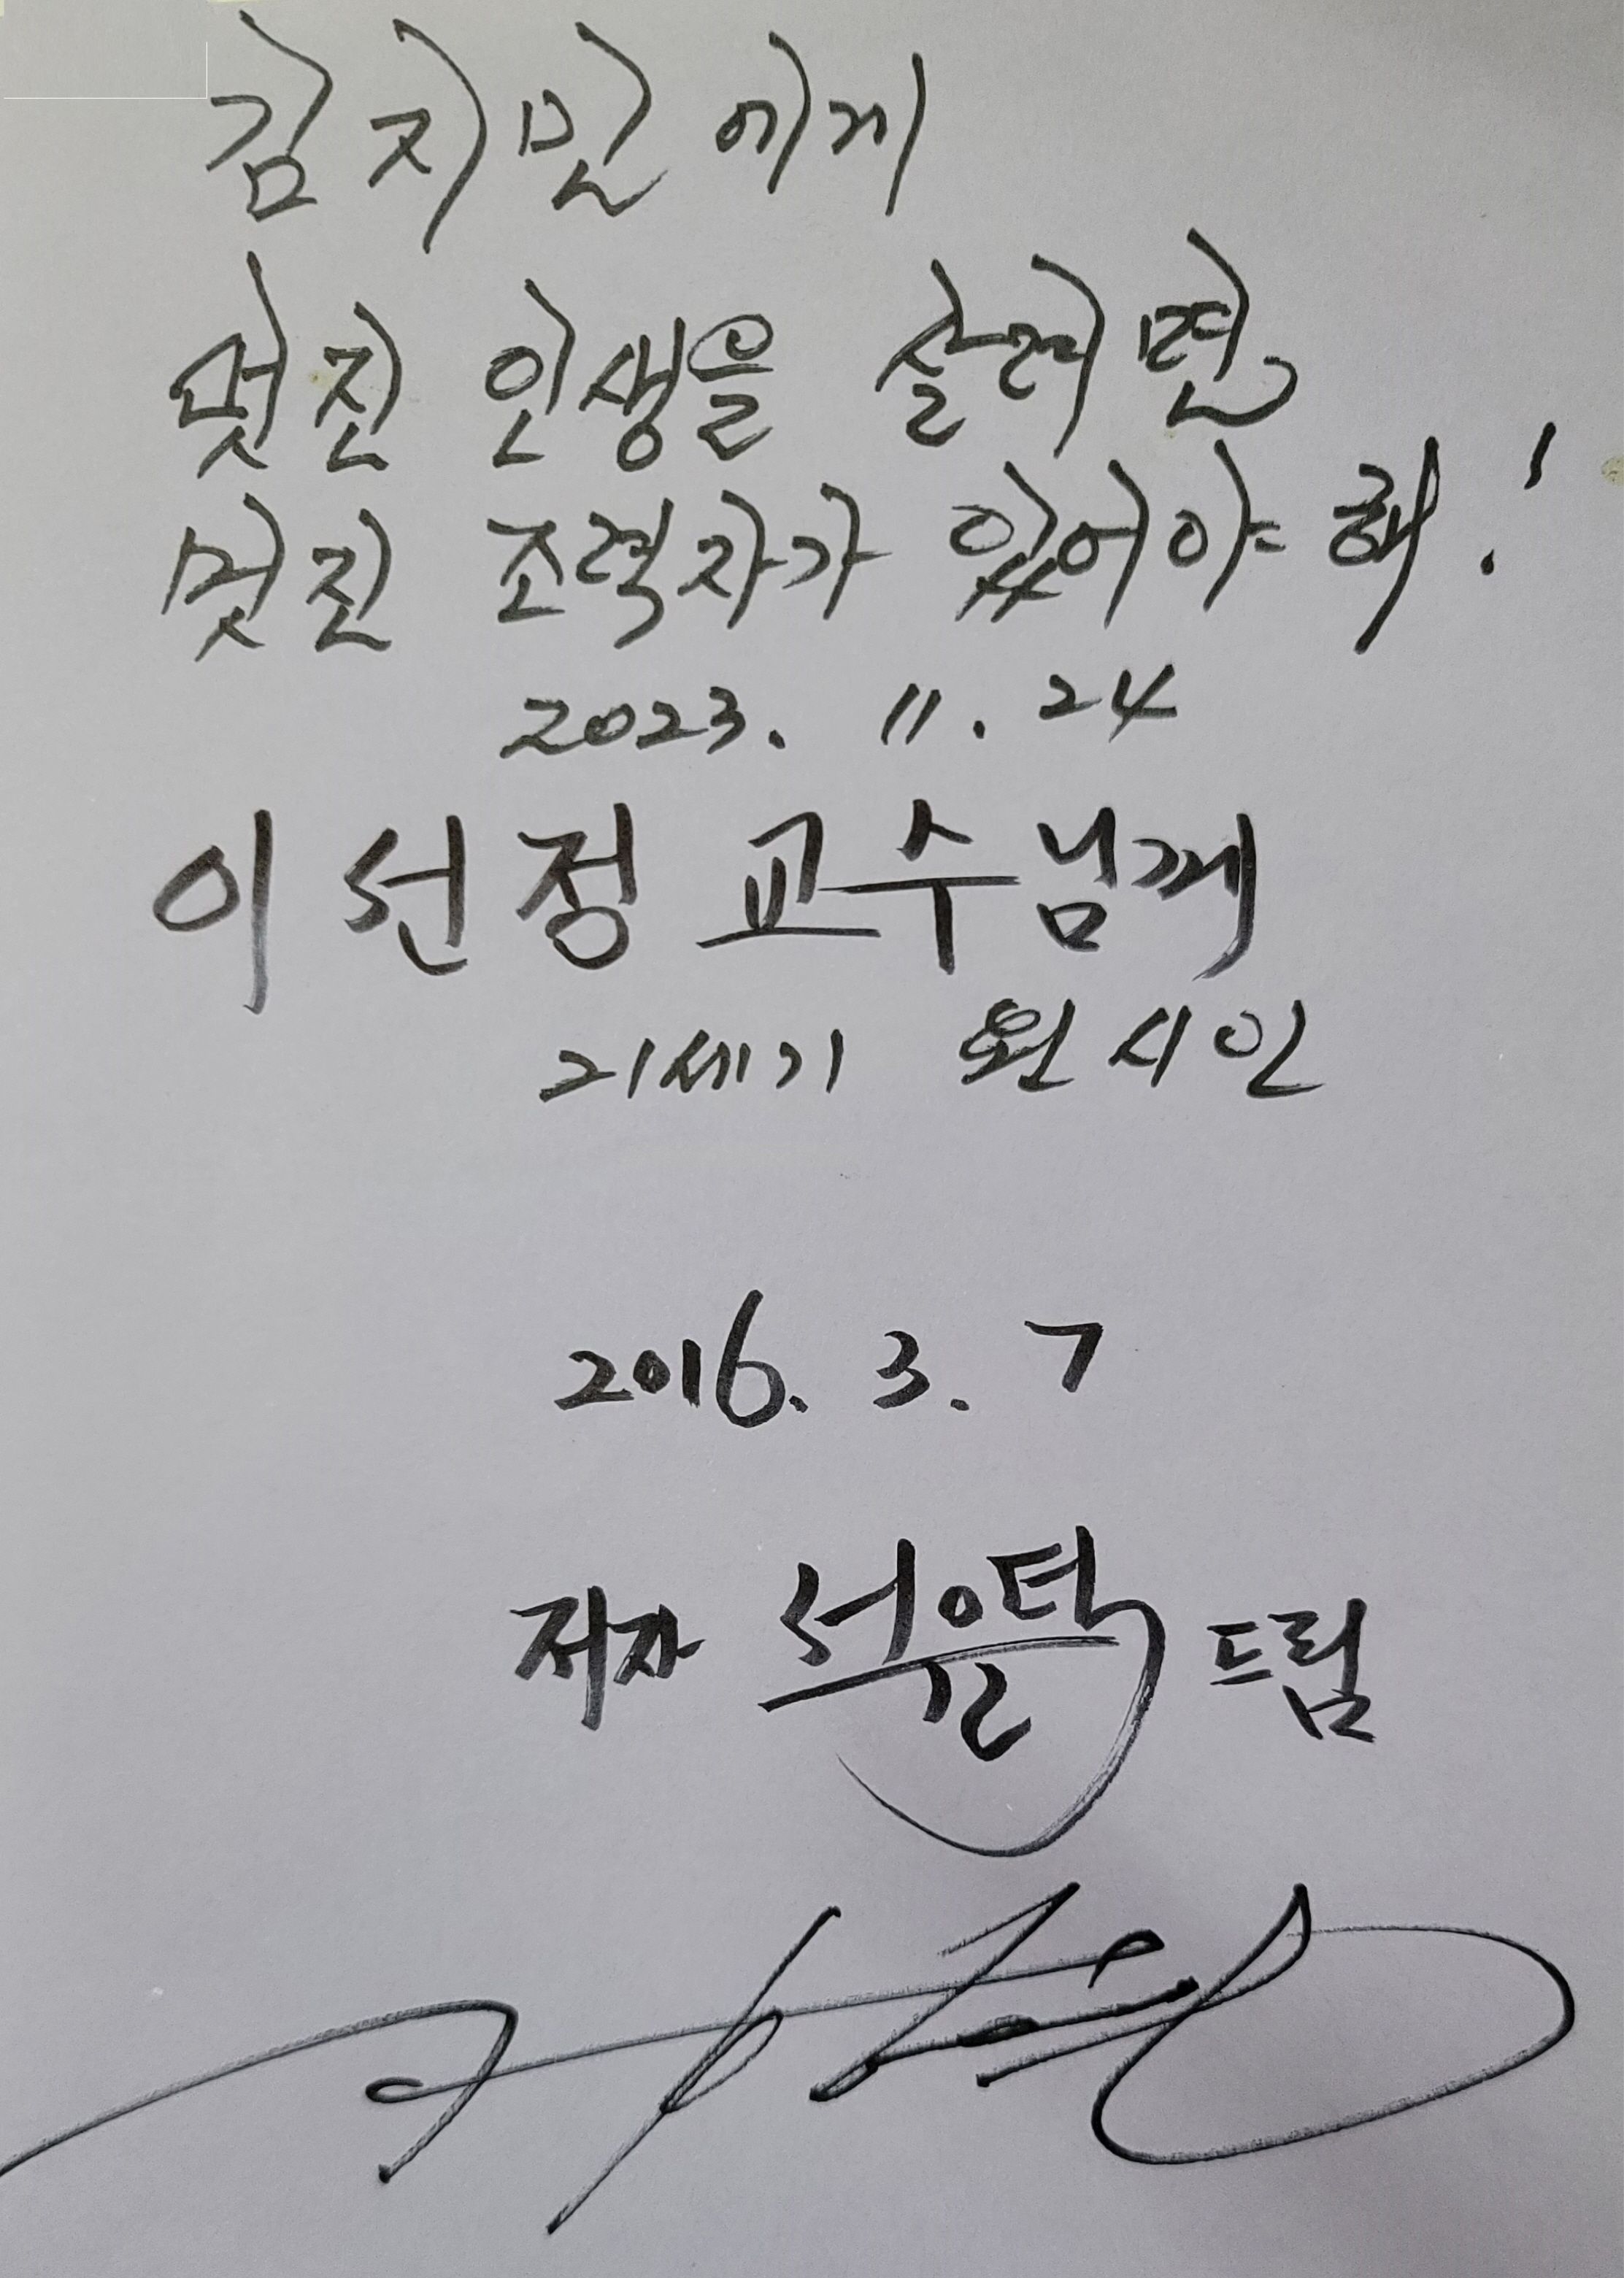 김지민에게
멋진 인생을 살려면
멋진 조력자가 있어야 해!
2023. 11. 24
이선정 교수님께
21세기 원시인
2016. 3. 7
저자 서윤덕 드림